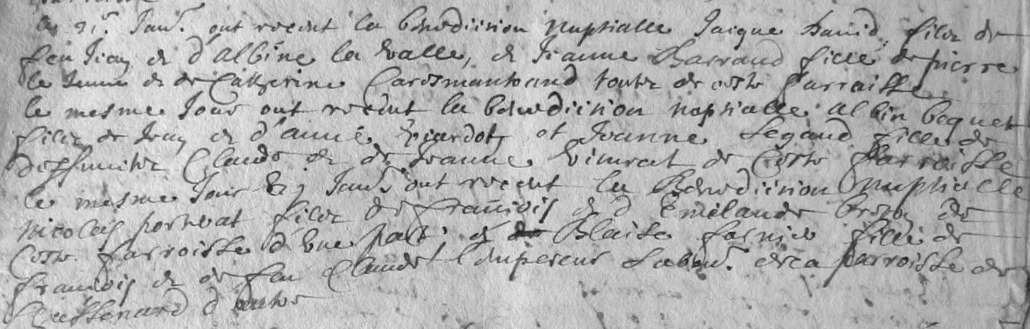 le 21e Janv. ont receut la benediction nuptialle Jaique David, filz de
feu Jean et d'albine la valle, et Jeanne Barraud fille de pierre
le Jeune et de Catherine toutz de ceste parroisse.
le mesme Jour ont receut la benediction nuptialle albin boguet
filz de Jean et d'anne et Jeanne Legaud fille de
deffunctz Claude et de Jeanne de Ceste parroisse
le mesme Jour 21 Janv. ont receut la Benediction Nuptialle
Nicolas porterat filz de françois et d'Emilande de
Ceste parroisse d'une part; et Blaise fille de
françois et de feu Claude de la parroisse de
d'autre